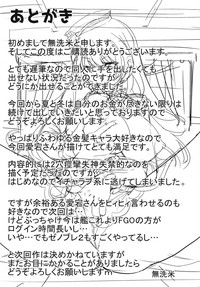 あとがき
初めまして無洗米と申します。
そしてこの度はご購読ありがとうございます。
とても遅筆なので同人に手を出したくても
出せない状況だったのですが
どうにか出せることができました。
今回から夏と冬は自分のお金が尽きない限りは
続けて出していきたいと思っておりますので
どうぞよろしくお願いします。
やっぱりふわゆる金髪キャラ大好きなので
今回で愛宕さんが描けてとても満足です。
描く予定だったのですが
はじめなのでイチャラブ系に逃げてしまいました。
ですが余裕ある愛宕さんをヒィヒィ言わせるのも
好きなので次回は…
けどぶっちゃけ今は艦これよりFGOの方が
ログイン時間長いし…
いや…でもゼノブレ2もすごくやってるし…
と次回作は決めかねていますが
またお目にかかることがありましたら
どうぞよろしくお願いしますm
無洗米